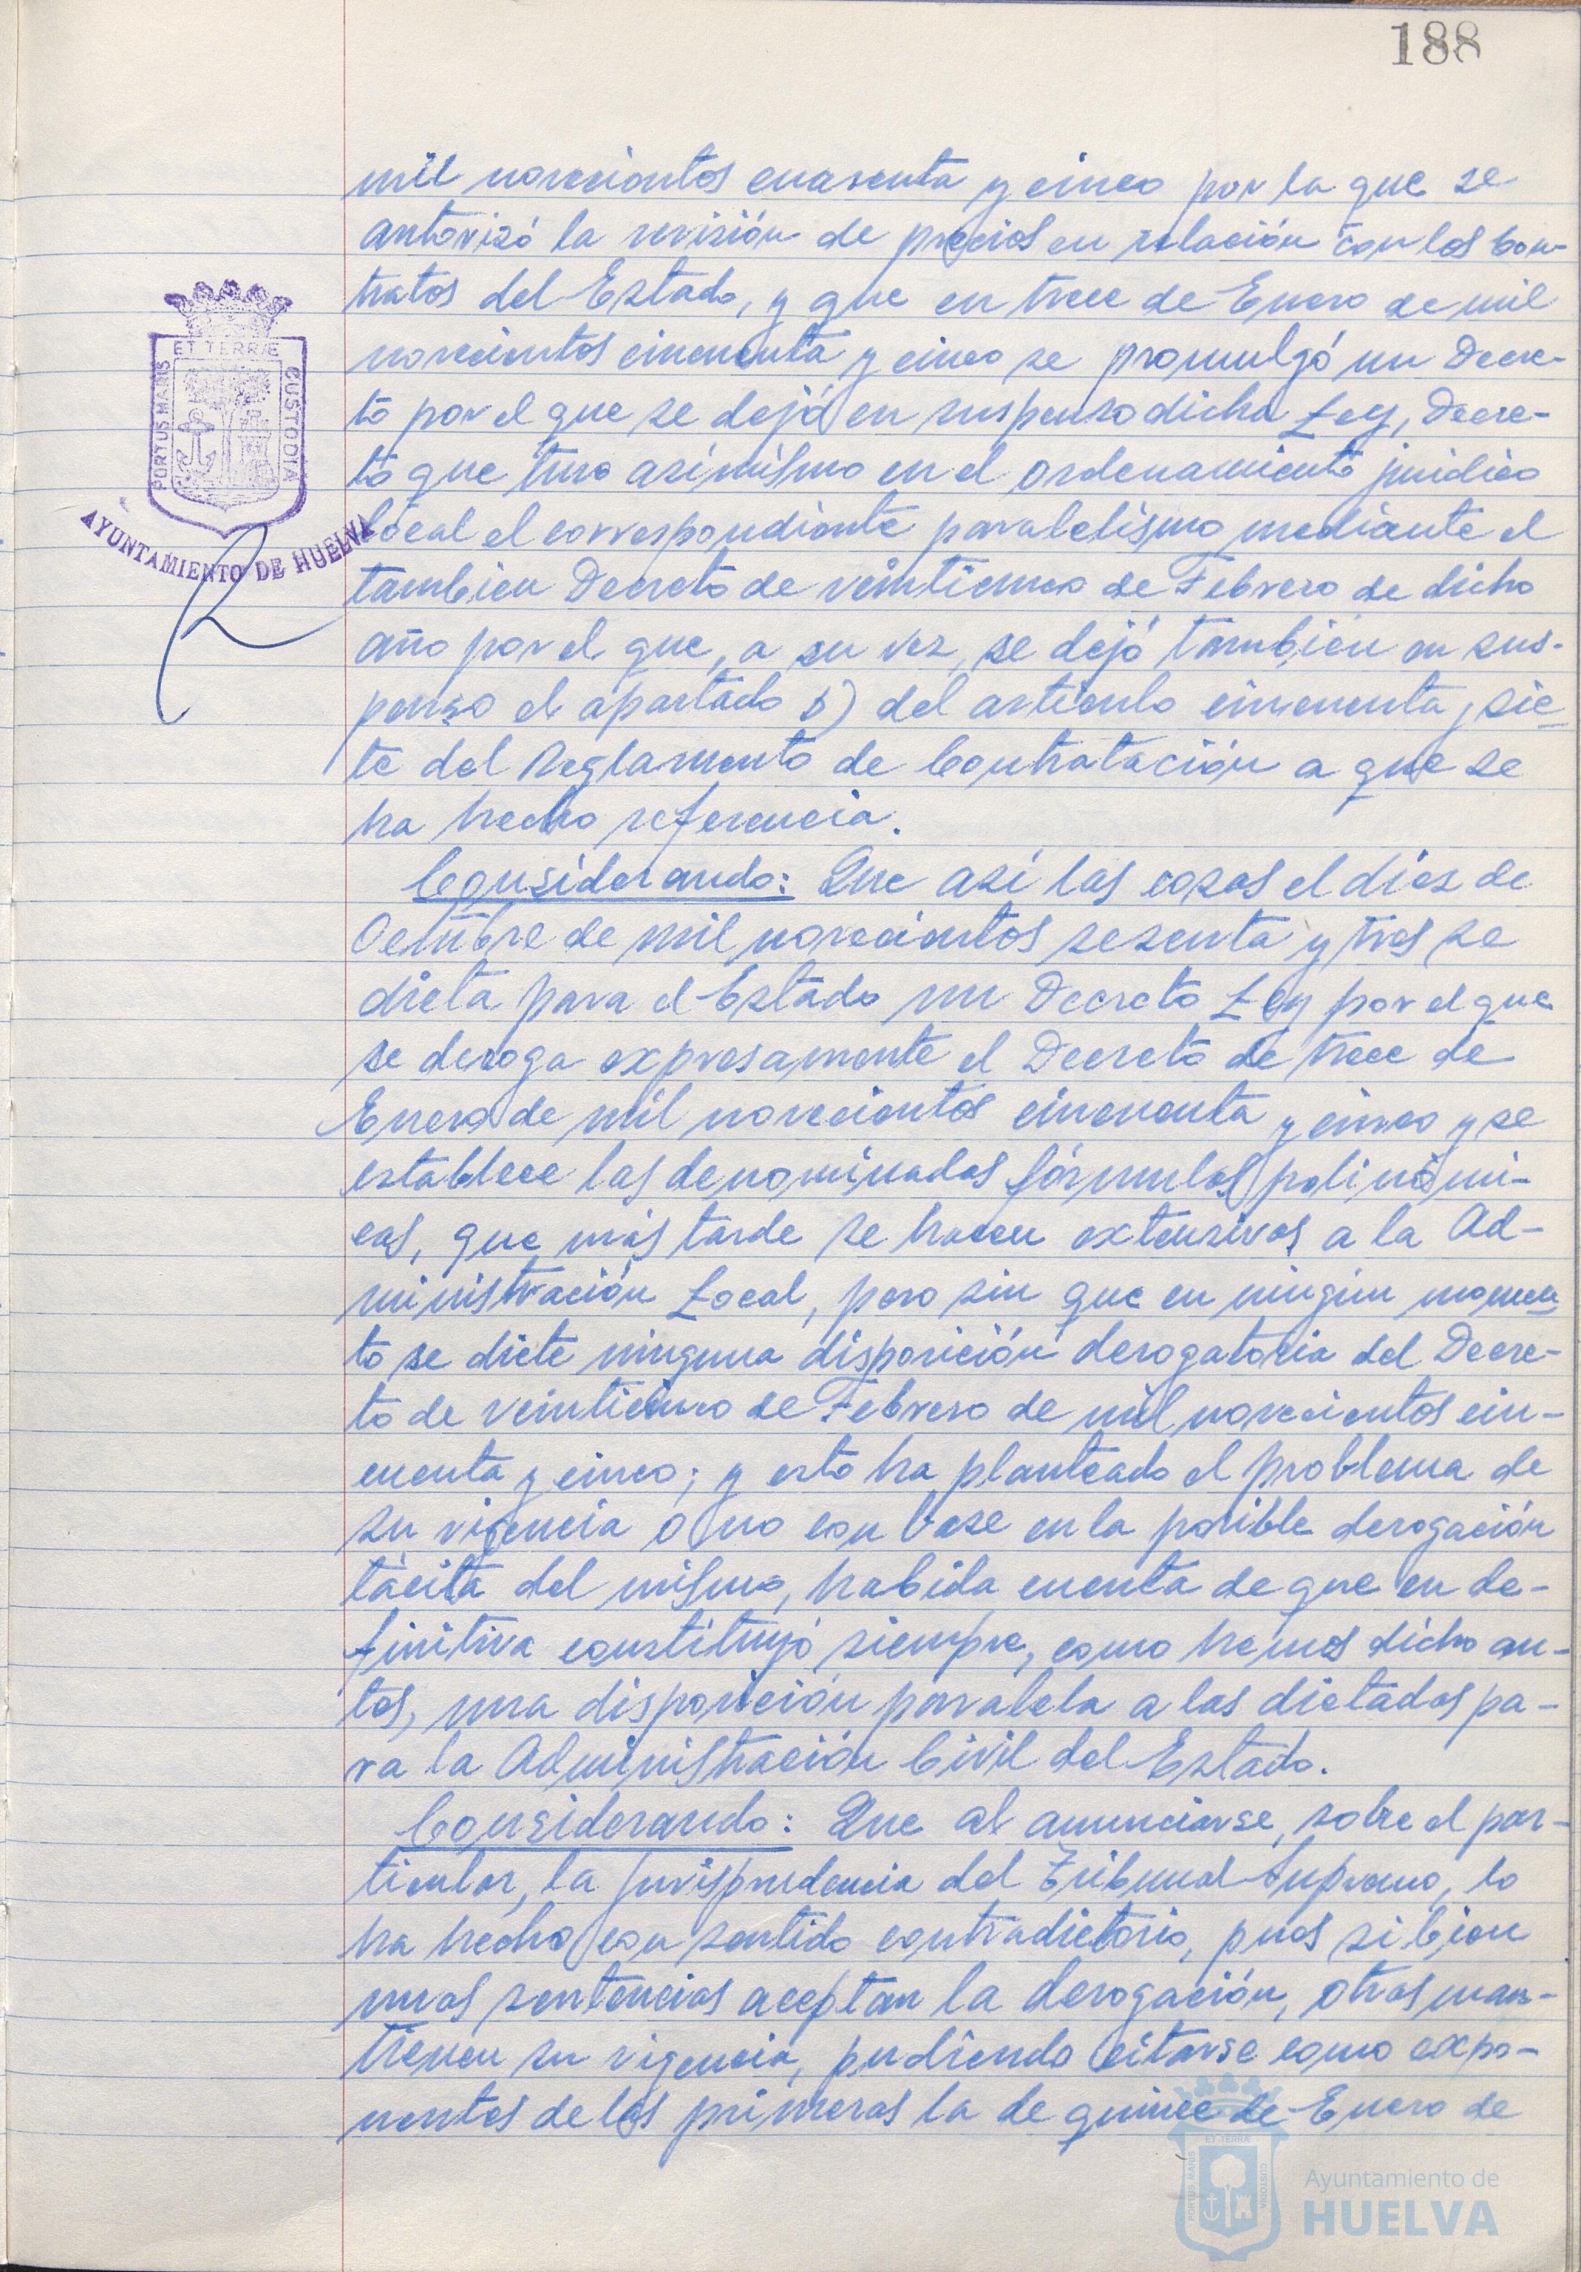 188
mil novecientos cuarenta y cinco por la que se
autorizó la revisión de precios en relación con los Con-
tratos del Estado, y que en trece de Enero de mil
novecientos cincuenta y cinco se promulgó un Decre-
to por el que se dejó en suspenso dicha Ley, Decre-
to que tuvo asímismo en el ordenamiento jurídico
local el correspondiente paralelismo mediante el
tambien Decreto de veinticinco de Febrero de dicho
año por el que, a su vez, se dejó también en sus-
penso el apartado 5) del artículo cincuenta y sie-
te del Reglamento de Contratación a que se
ha hecho referencia.
Considerando: Que así las cosas el diez de
Octubre de mil novecientos sesenta y tres se
dicta para el Estado un Decreto Ley por el que
se deroga expresamente el Decreto de trece de
Enero de mil novecientos cincuenta y cinco y se
establece las denominadas fórmulas polinómi-
cas, que más tarde se hacen extensivas a la Ad-
ministración Local, pero sin que en ningún momen
to se dicte ninguna disposición derogatoria del Decre-
to de veinticinco de Febrero de mil novecientos cin-
cuenta y cinco; y esto ha planteado el problema de
su vigencia o no con base en la posible derogación
tácita del mismo, habida cuenta de que en de-
finitiva constituyó siempre, como hemos dicho an-
tes, una disposición paralela a las dictadas pa-
ra la Administración Civil del Estado.
Considerando: Que al anunciarse, sobre el par-
ticular, la Jurisprudencia del Tribunal Supremo, lo
ha hecho con sentido contradictorio, pues si bien
unas sentencias aceptan la derogación, otras man-
tienen su vigencia, pudiendo citarse como expo-
nentes de las primeras la de quince de Enero de
ET TERRÆ
PORTUS MARIS
CUSTODIA
AYUNTAMIENTO DE HUELVA
ET TERRÆ
PORTUS MARIS
CUSTODIA
Ayuntamiento de
HUELVA